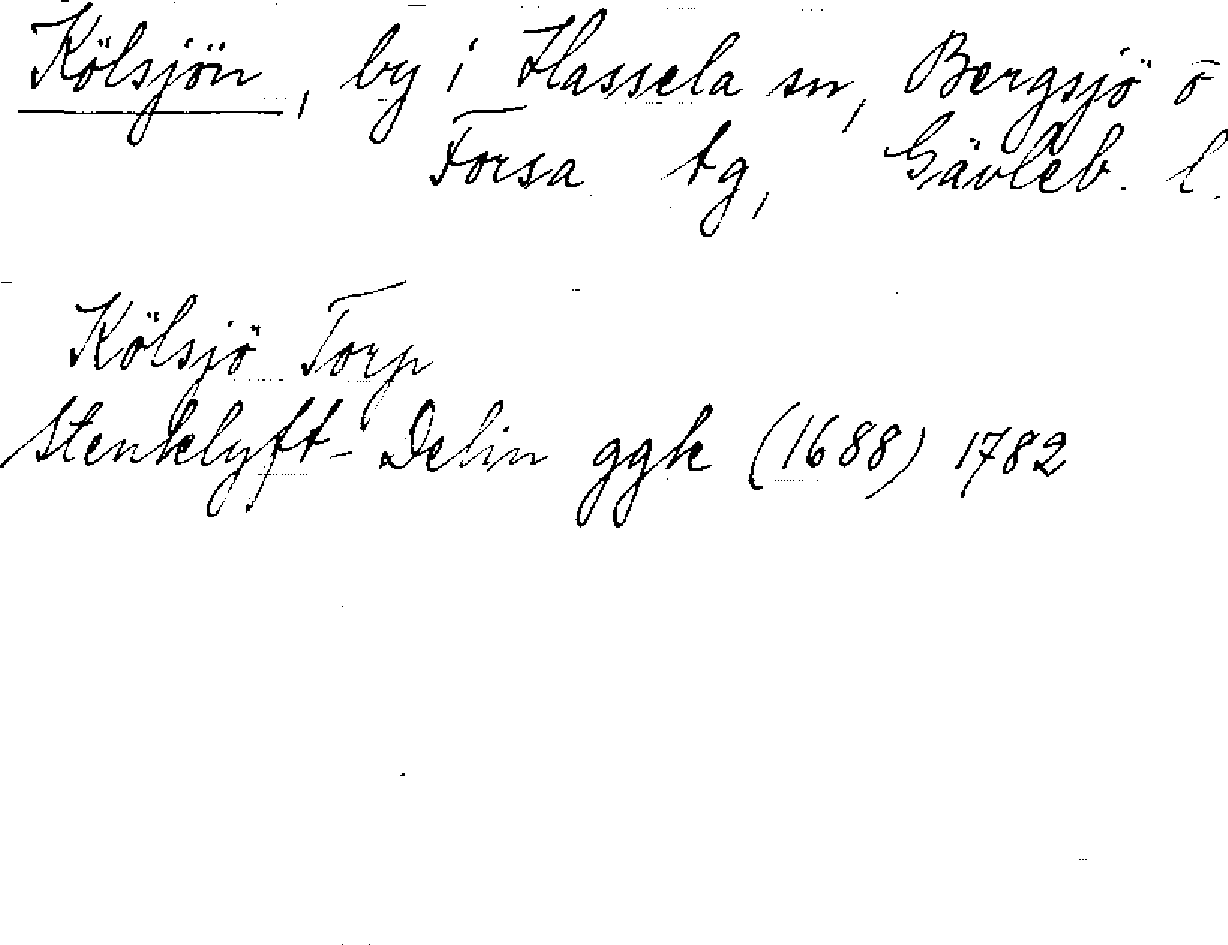 Kölsjön, by i Hassela sn, Bergsjö o
Forsa tg, Gävleb. l.
Kölsjö Torp
Stenklyft-Delin ggk (1688) 1782